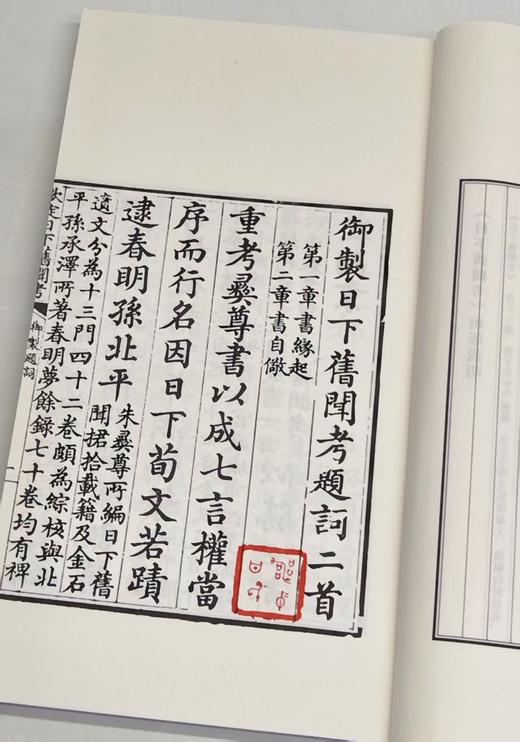 御製日下舊聞考題詞二首
第一章書緣起
第二章書自儆
重考彞尊書以成七言權當
序而行名因日下荀文若蹟
逮春明孫北平
朱彞尊所編日下舊
聞捃拾載籍及金石
遺文分為十三門四十二卷頗為綜核與北
平孫承澤所著春明夢餘錄七十卷均有裨
欽定日下舊聞考
御製題詞
一